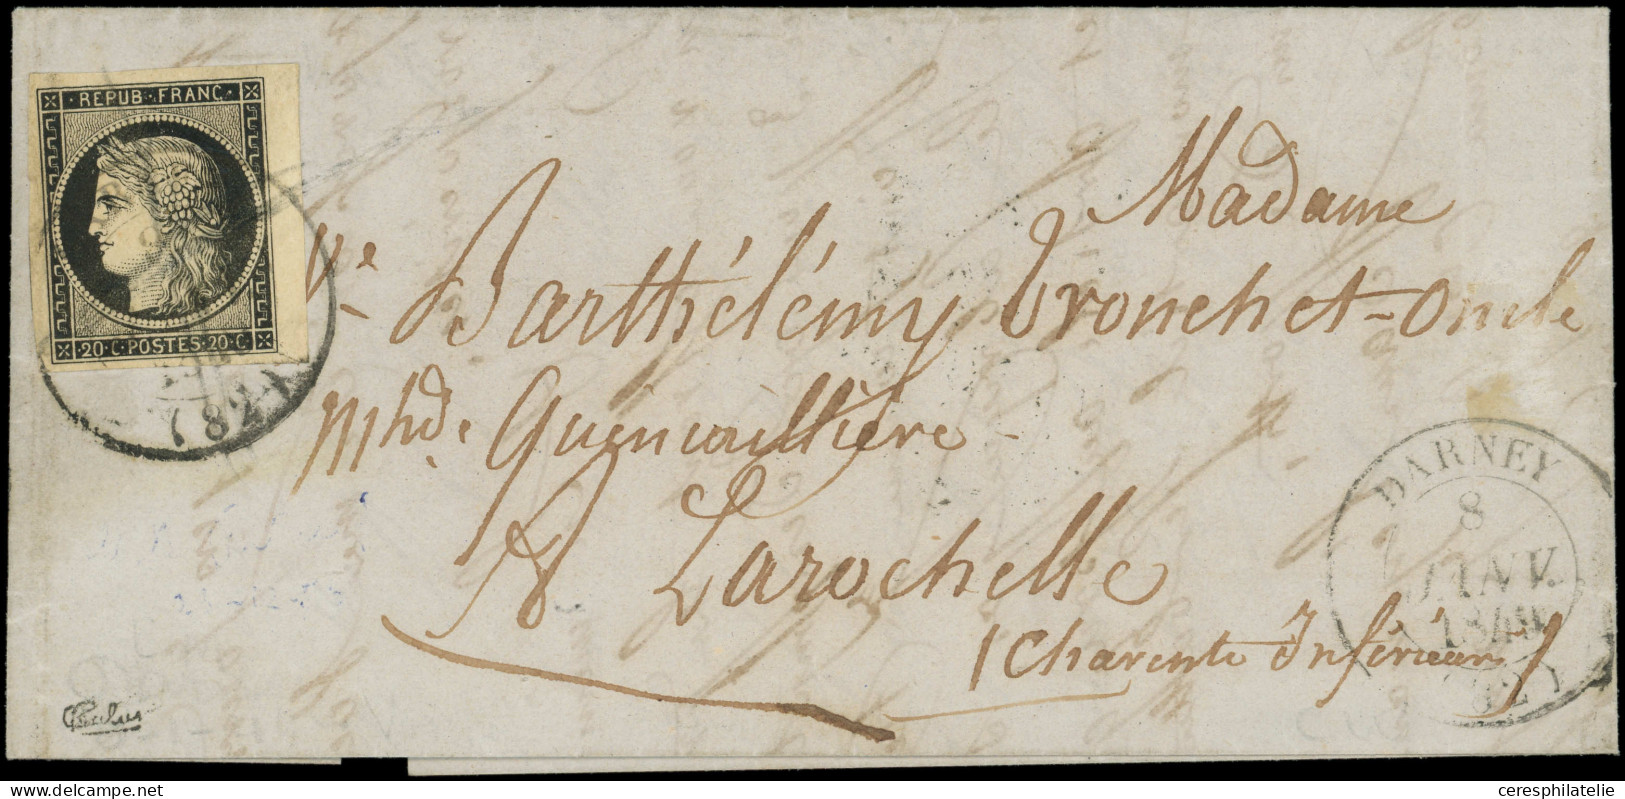 REPUB·FRANC·
20·C·POSTES·20·C·
(82)
Madame
Ve Barthélémy Tronchet-Oncle
Mhde Quincaillière
A Larochelle
(Charente Inférieure)
DARNEY
8
JANV.
1849
(82)
Calves
www.delcampe.net
ceresphilatelie